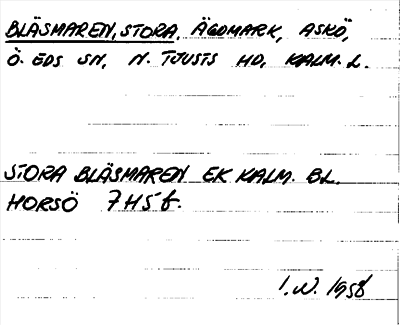 BLÄSMAREN, STORA, ÄGOMARK, ASKÖ,
Ö. EDS SN, N. TJUSTS HD, KALM. L.
STORA BLÄSMAREN EK KALM. BL.
HORSÖ 7H5f
I.N. 1958